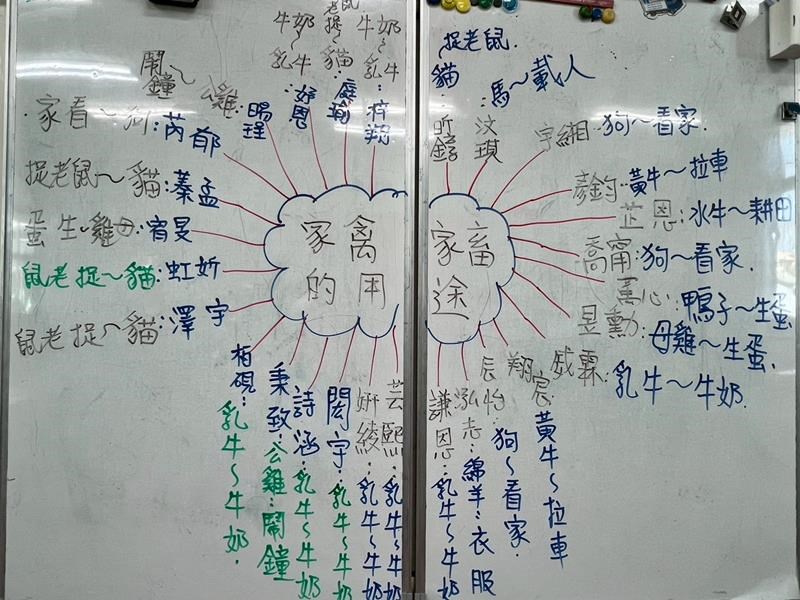 家禽家畜
的用途
鬧鐘～公雞:暘珵
牛奶～乳牛:妤恩
捉老鼠～貓:庭瑜
牛奶～乳牛:梓翔
家看～狗:芮郁
捉老鼠～貓:蓁孟
蛋生～雞母:宥旻
鼠老捉～貓:虹妡
鼠老捉～貓:澤宇
柏硯:乳牛～牛奶.
秉致:公雞:鬧鐘
詩涵:乳牛～牛奶
閎宇:乳牛～牛奶
妍綾:乳牛～牛奶
芸熙:乳牛～牛奶
捉老鼠.
貓:昕
馬～載人
:汶琪
宇緗 狗～看家.
彥鈞:黃牛～拉車
芷恩:水牛～耕田
喬甯:狗～看家.
心:鴨子～生蛋
昱勳:母雞～生蛋.
威霖:乳牛～牛奶.
翔宸 黃牛～拉車
辰怡:狗～看家.
泓志:綿羊:衣服
謙恩:乳牛～牛奶